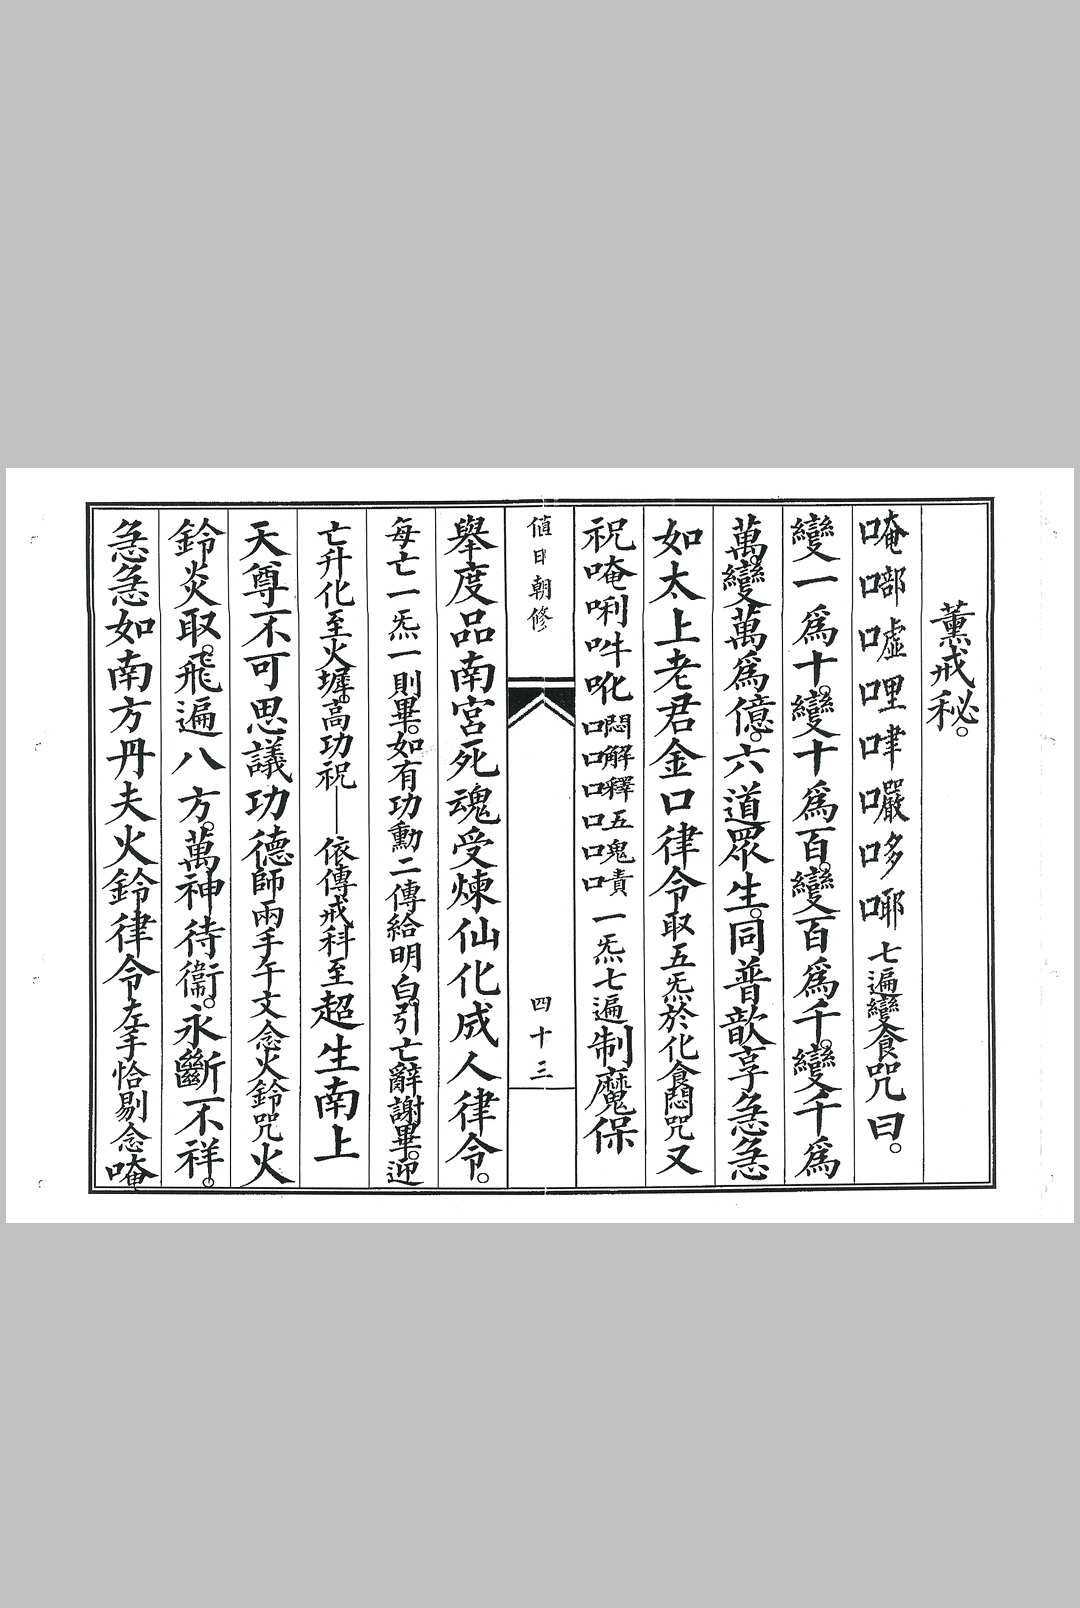 薰戒秘。
唵㗙噓哩㖀囐哆哪七遍變食咒曰。
變一爲十。變十爲百。變百爲千。變千爲
萬。變萬爲億。六道眾生。同普歆享急急
如太上老君金口律令取五炁於化食悶咒又
祝唵唎吽𠯐悶解釋五鬼責口口口口口口一炁七遍制魔保
值日朝修
四十三
舉度品南宮死魂受煉仙化成人律令。
每亡一炁一則畢。如有功勳二傳給明白。引亡辭謝畢。迎
亡升化至火墀。高功祝——依傳戒科至超生南上
天尊不可思議功德師兩手午文念火鈴咒火
鈴炎取。飛遍八方。萬神待衞。永斷不祥。
急急如南方丹夫火鈴律令左手恰剔念唵